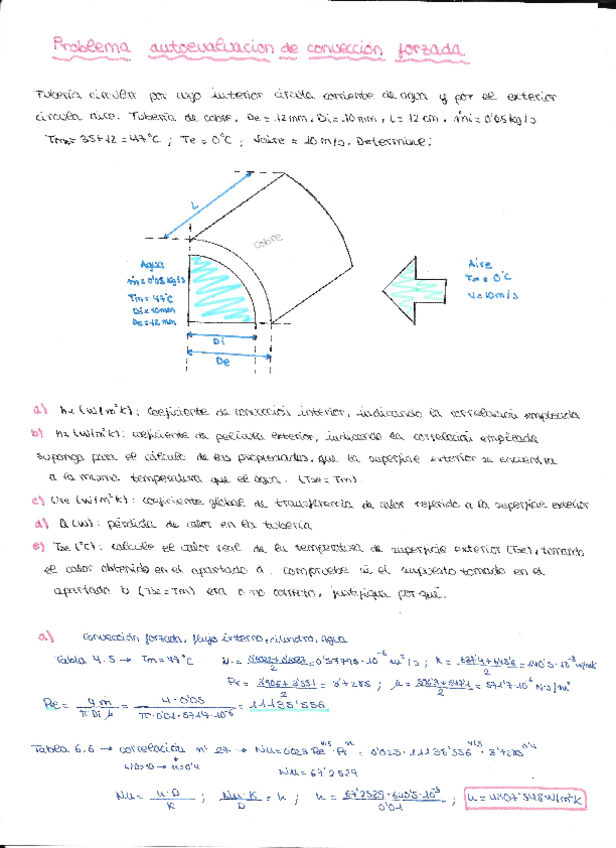 Problema autoevaluacion de convección forzada
Tubería circular por cuyo interior circula corriente de agua y por el exterior
circula aire. Tubería de cobre, De = 12mm, Di = 10mm, L = 12 cm, ṁi = 0'05 kg/s
Tm = 35+12 = 47°C ; Te = 0°C ; Vaire = 10 m/s. Determine:
L
cobre
Agua
ṁ = 0'05 kg/s
Tm = 47°C
Di = 10mm
De = 12mm
Di
De
Aire
T∞ = 0°C
V = 10 m/s
a) (W/m²K): Coeficiente de convección interior, indicando la correlación empleada
b) (W/m²K): coeficiente de película exterior, indicando la correlación empleada
suponga para el cálculo de las propiedades, que la superficie exterior se encuentra
a la misma temperatura que el agua. (Tse = Tm).
c) (W/m²K): coeficiente global de transferencia de calor referido a la superficie exterior
d) Q (W): pérdida de calor en la tubería
e) Tse (°C): calcule el valor real de la temperatura de superficie exterior (Tse), tomando
el valor obtenido en el apartado a. compruebe si el supuesto tomado en el
apartado b (Tse = Tm) era o no correcto, justifique por qué.
a) convección forzada, flujo interno, cilindro, agua
Tabla 4.5 → Tm = 47°C
Re = 4ṁ / π Di μ = 4·0'05 / π·0'01·571'7·10⁻⁶ = 11135'556
Tabla 6.6 → correlación nº 27 → Nu = 0'023 Re^4/5 · Pr^n = 0'023 · 11135'556^4/5 · 3'7285^0'4
n = 0'4
Nu = 67'2529
Nu = h·D / K ; Nu·K / D = h ; h = 67'2529 · 640'5·10⁻³ / 0'01 ; h = 4307'548 W/m²K